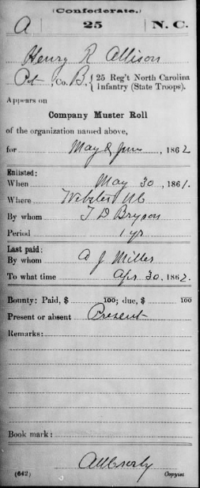 (Confederate.)
A 25 N. C.
Henry R Allison
Pvt, Co. B, 25 Reg't North Carolina
Infantry (State Troops).
Appears on
Company Muster Roll
of the organization named above,
for May & June, 1862
Enlisted:
When May 30, 1861.
Where Webster NC
By whom T D Bryson
Period 1 yr
Last paid:
By whom A J Miller
To what time Apr. 30, 1862.
Bounty: Paid, $ 100; due, $ 100
Present or absent Present
Remarks:
Book mark:
(642) Copyist.